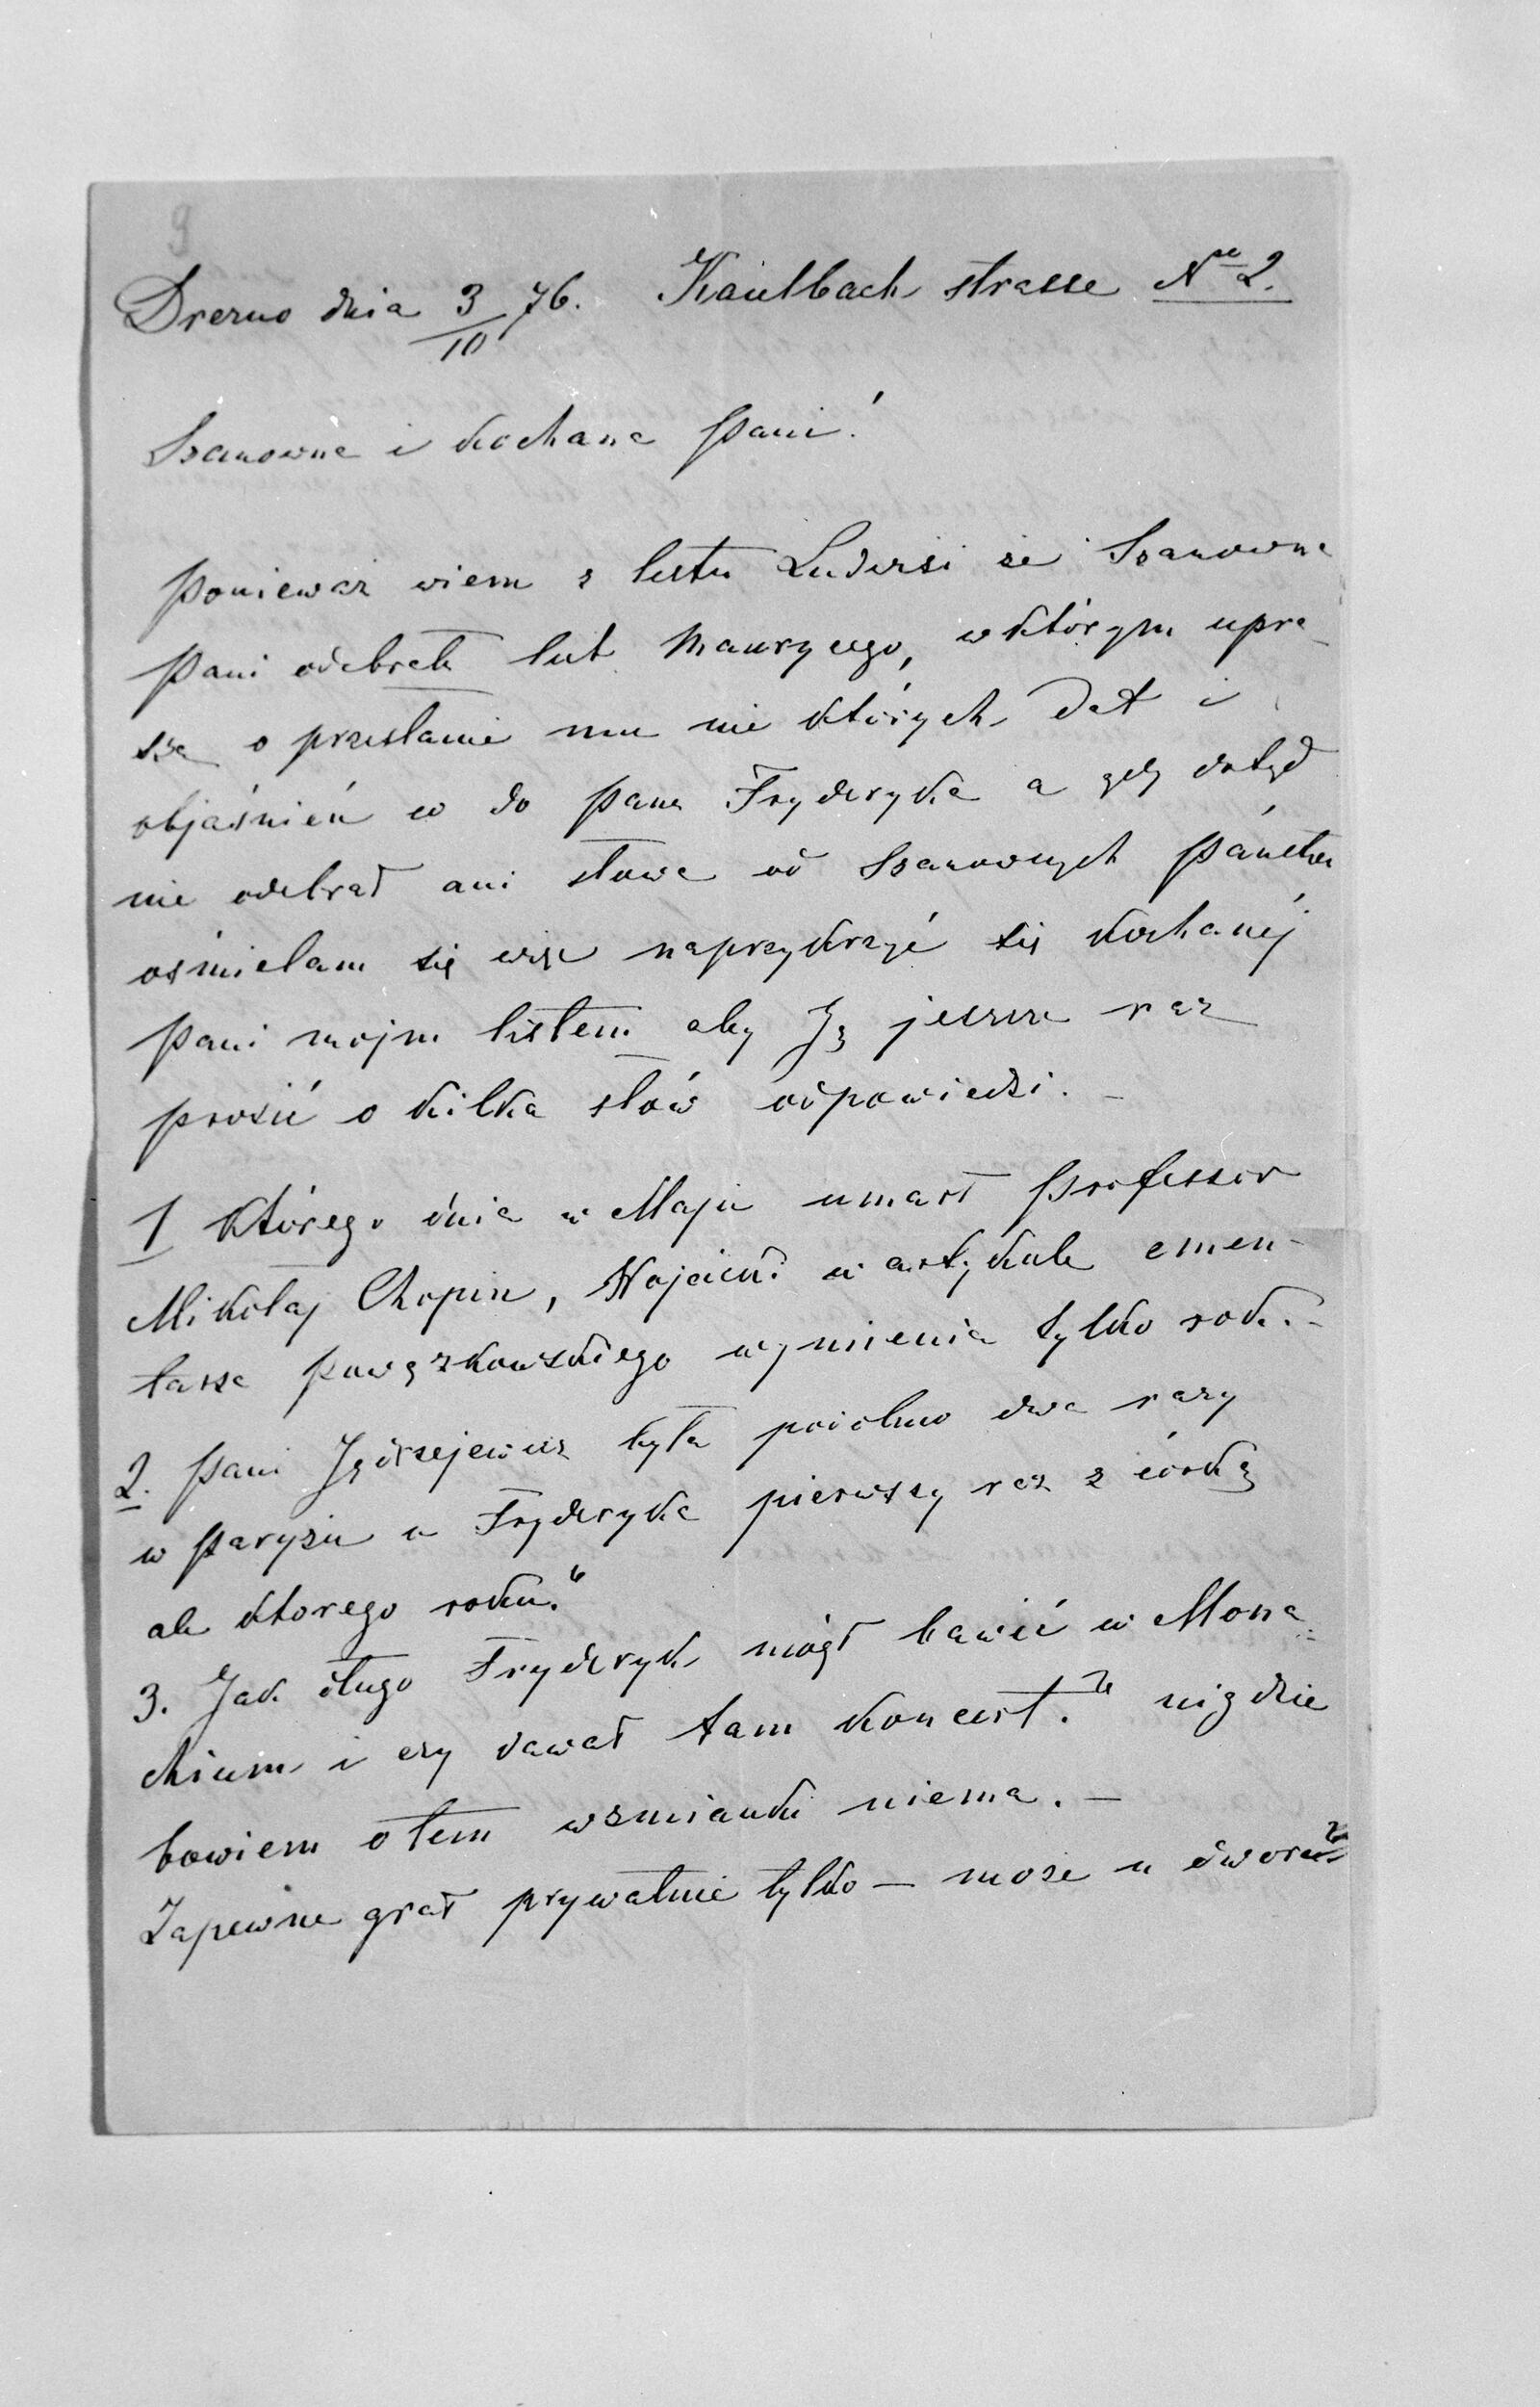 9
Drezno dnia 3/10 76. Kaulbach strasse No 2.
Szanowna i kochana Pani!
Ponieważ wiem z listu Ludwisi że Szanowna
Pani odebrała list Maurycego, w którym upra
sza o przesłanie mu nie których dat i
objaśnień co do Pana Fryderyka a gdy dotąd
nie odebrał ani słowa od Szanownych Państwa
ośmielam się więc naprzykrzyć się kochanéj
Pani mojm listem aby Ją jeszcze raz
prosić o kilka słów odpowiedzi. –
1 Którego dnia w Maju umarł Professor
Mikołaj Chopin, Wojcicki w artykule cmen-
tarza Powązkowskiego wymienia tylko rok. –
2. Pani Jędrzejewicz była podobno dwa razy
w Paryżu u Fryderyka pierwszy raz z córką
ale ktorego roku?
3. Jak długo Fryderyk mógł bawić w Mona-
chium i czy dawał tam koncert? nigdzie
bowiem o tem wzmianki niema. –
Zapewne grał prywatnie tylko – może u dworu?